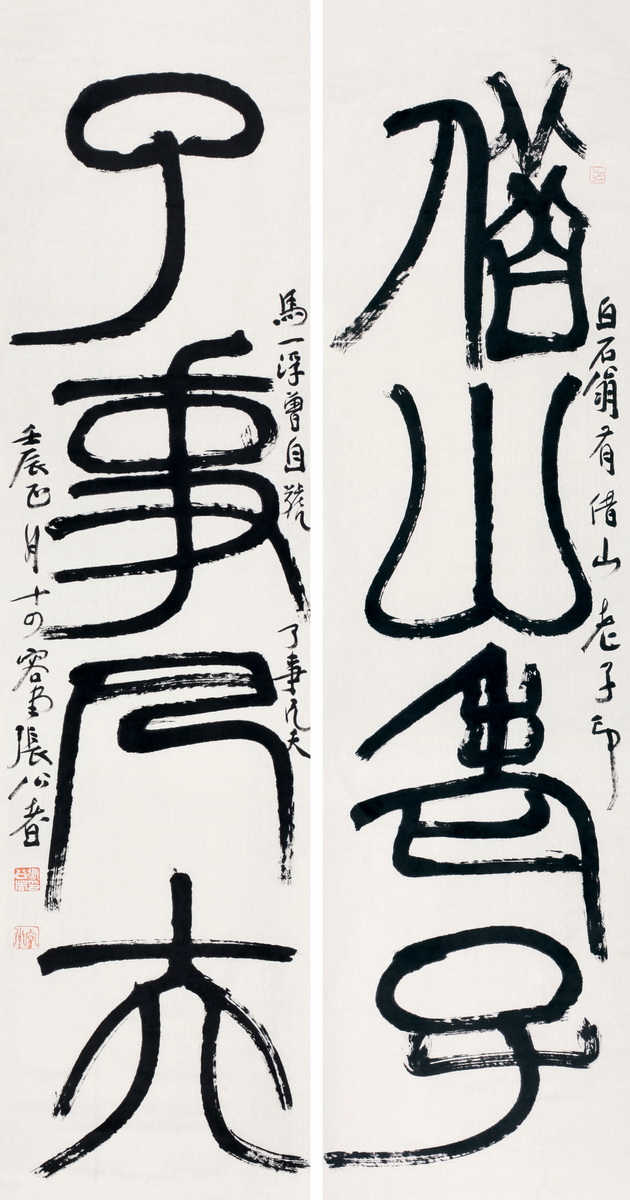 白石翁有借山老子印
借山老子
馬一浮曾自號了事凡夫
了事凡夫
壬辰正月十四容堂張公者